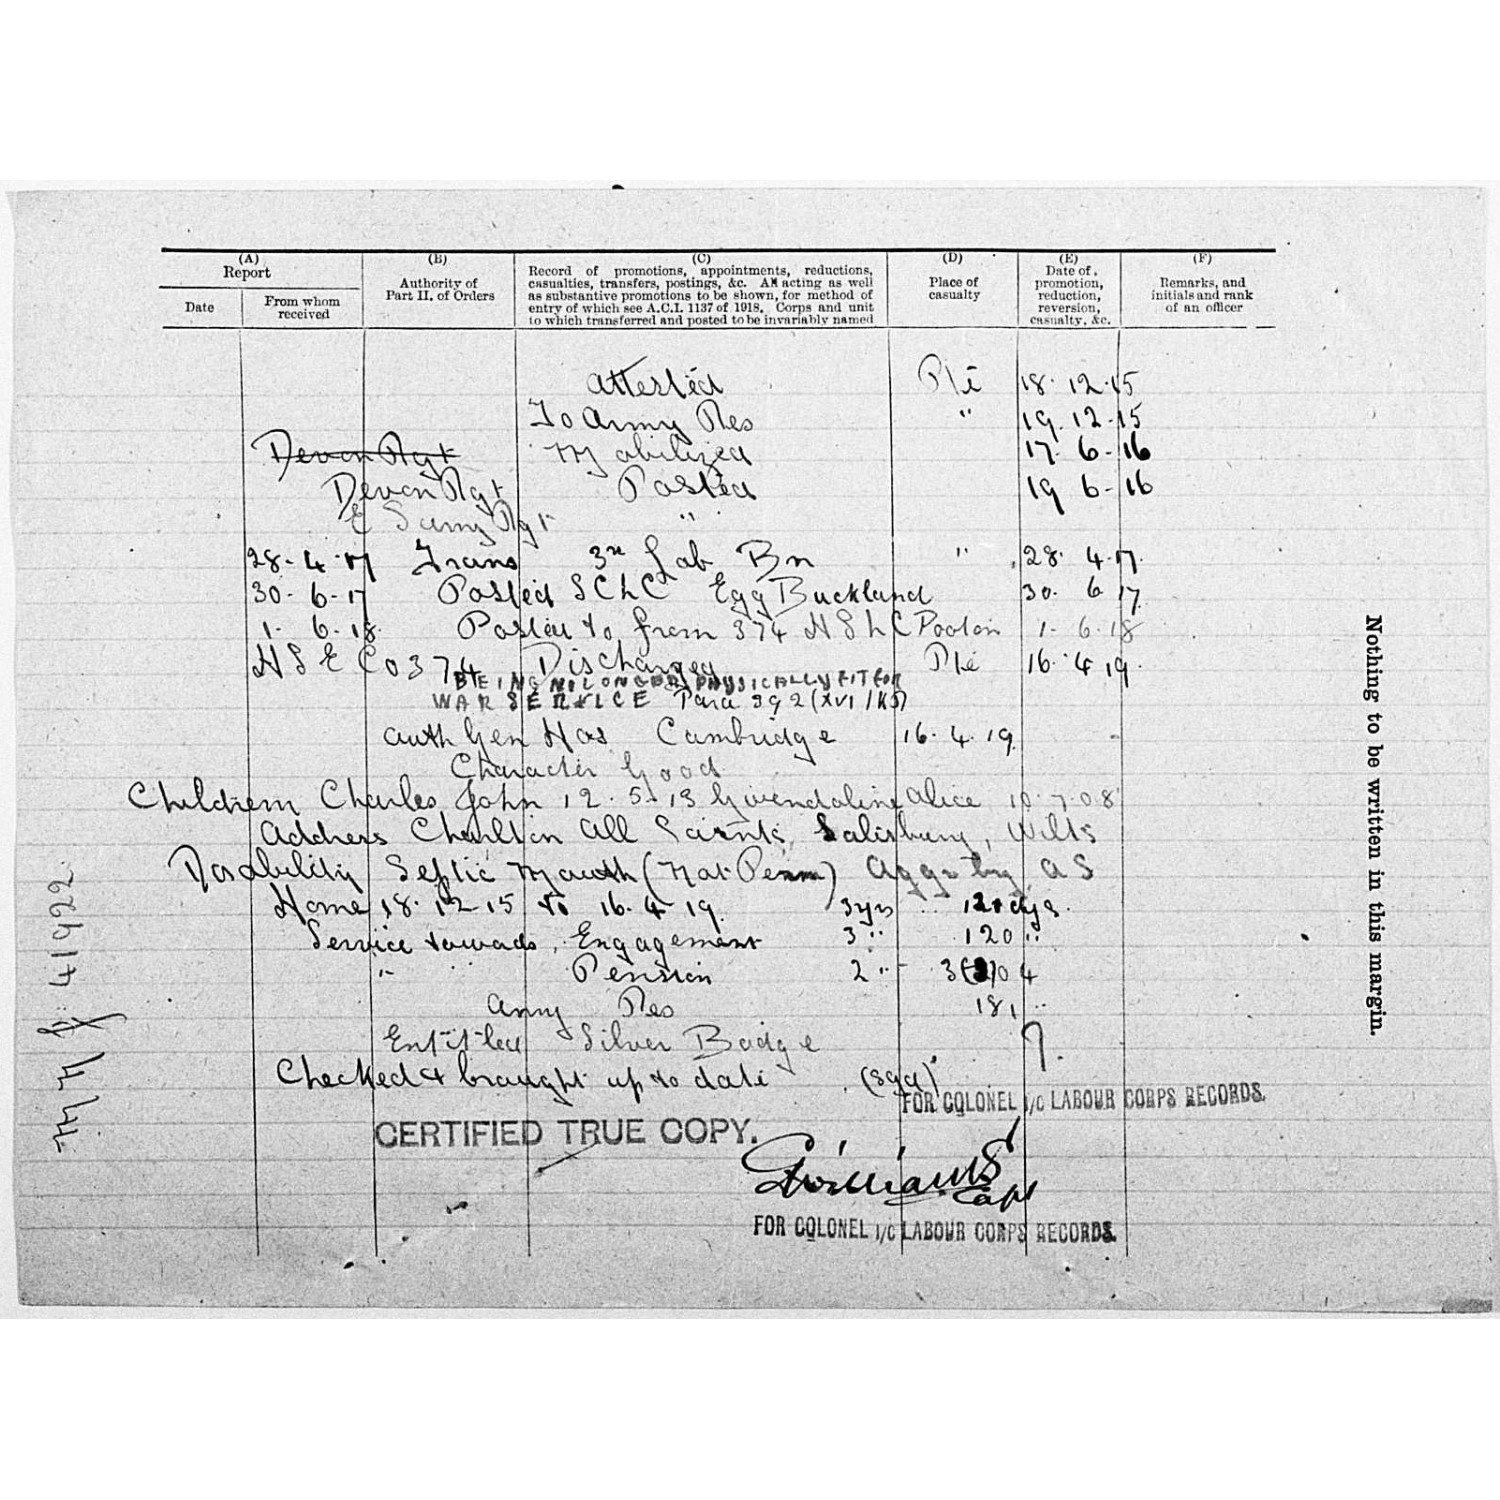 (A) (B) (C) (D) (E) (F)
Report
Date
From whom received
Authority of Part II. of Orders
Record of promotions, appointments, reductions,
casualties, transfers, postings, &c. All acting as well
as substantive promotions to be shown, for method of
entry of which see A.C.I. 1137 of 1918. Corps and unit
to which transferred and posted to be invariably named
Place of casualty
Date of promotion, reduction, reversion, casualty, &c.
Remarks, and initials and rank of an officer
Attested Pte 18. 12. 15
To Army Res " 19. 12. 15
Devon Rgt Mobilized 17. 6. 16
Devon Rgt Posted 19 6. 16
E Surry Rgt "
28. 4. 17 Trans 3rd Lab Bn " 28. 4. 17.
30. 6. 17 Posted SCLC Egg Buckland 30. 6 17.
1. 6. 18 Posted to from 374 HSLC 1. 6. 18
HSECo 374 Discharged Pte 16. 4 19.
BEING NO LONGER PHYSICALLY FIT FOR
WAR SERVICE Para 392 (XVI/KR)
auth Gen Hos Cambridge 16. 4. 19.
Character Good
Children Charles John 12. 5. 13 Gwendoline Alice 10. 7. 08
Address Charlton All Saints, Salisbury, Wilts
Disability Septic Mouth (Not Perm) Agg. by AS
Home 18. 12 15 to 16. 4 19. 3 yrs 120 dys.
Service towards Engagement 3 " 120 "
" " Pension 2 " 304
Army Res 181 "
Entitled Silver Badge
Checked & brought up to date (sgd)
FOR COLONEL i/c LABOUR CORPS RECORDS.
CERTIFIED TRUE COPY.
Williams Capt
FOR COLONEL i/c LABOUR CORPS RECORDS.
Nothing to be written in this margin.
41922